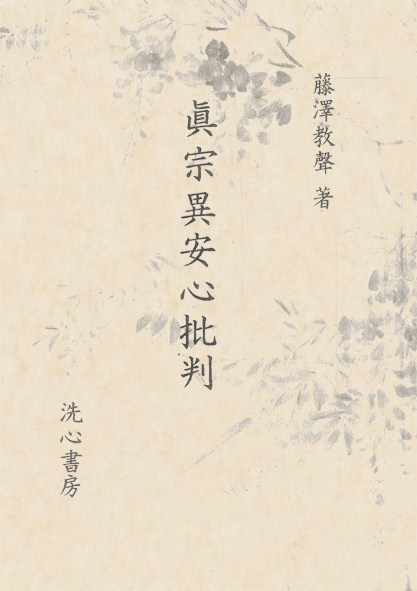 藤澤教聲 著
眞宗異安心批判
洗心書房